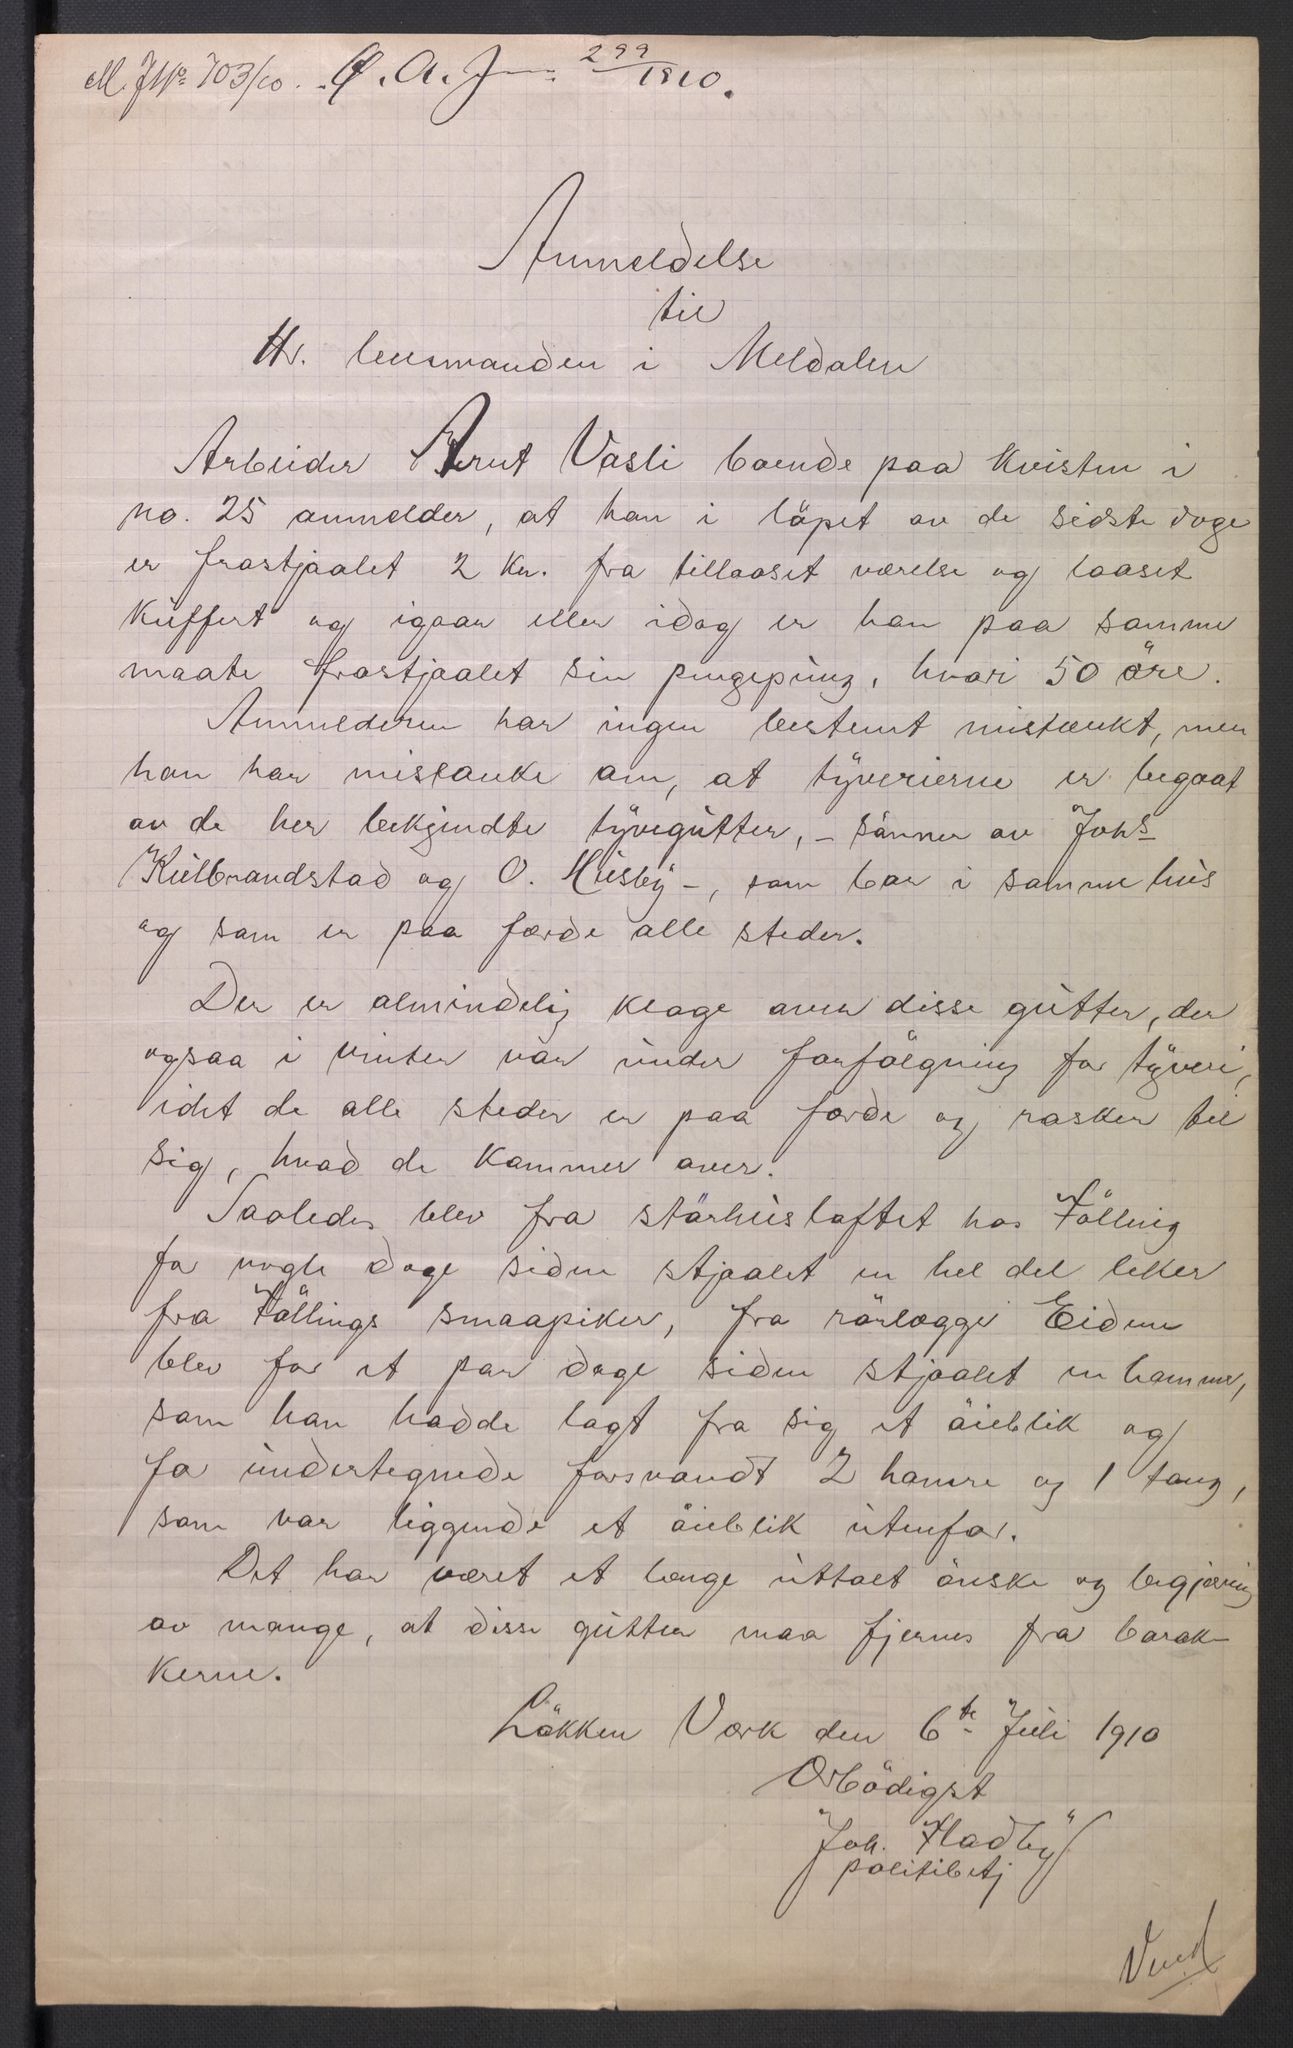 M. J No 703/10. O. A. J 299/1910.
Anmeldelse
til
Hr. lensmanden i Meldalen
Arbeider Arnt Vasli boende paa kvisten i
no. 25 anmelder, at han i löpet av de sidste dage
er frastjaalet 2 Kr. fra tillaaset værelse og laaset
Kuffert og igaar eller idag er han paa samme
maate frastjaalet sin pungepung, hvori 50 öre.
Anmelderen har ingen bestemt mistænkt, men
han har mistanke om, at tyverierne er begaat
av de her bekjendte tyvegutter, - sönner av Johs
Kulbrandstad og O. Husby -, som bor i samme hus
og som er paa færde alle steder.
Der er almindelig klage over disse gutter, der
ogsaa i vinter var under forfölgning for tyveri,
idet de alle steder er paa færde og rasker til
sig, hvad de kommer over.
Saaledes blev fra störhusloftet hos Fölling
for nogle dage siden stjaalet en hel del leker
fra Föllings smaapiker, fra rörlægger Eidem
blev for et par dage siden stjaalet en hammer,
som han hadde lagt fra sig et öieblik og
for undertegnede forsvandt 2 hamre og 1 tang,
som var liggende et öieblik utenfor.
Det har været et længe uttalt önske og begjæring
av mange, at disse gutter maa fjernes fra barak-
kerne.
Lökken Værk den 6te Juli 1910
Ærbödigst
Joh. Fladby
politibetj
Vend